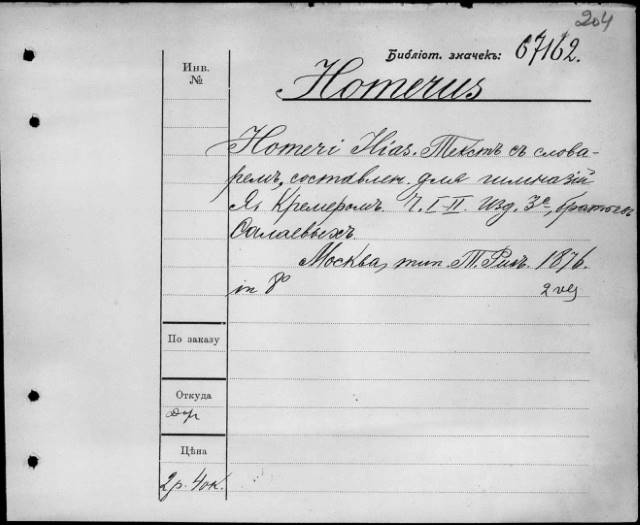 204
Библіот. значекъ: 67162.
Инв.
№
Homerus
Homeri Ilias. Текстъ съ слова-
ремъ, составлен. для гимназій
Як. Кремеромъ. Ч. I-II. Изд. 3е, братьевъ
Салаевыхъ.
Москва, тип. Т. Рисъ. 1876.
in 8º
2 vol
По заказу
Откуда
Цѣна
2 р. 40 к.